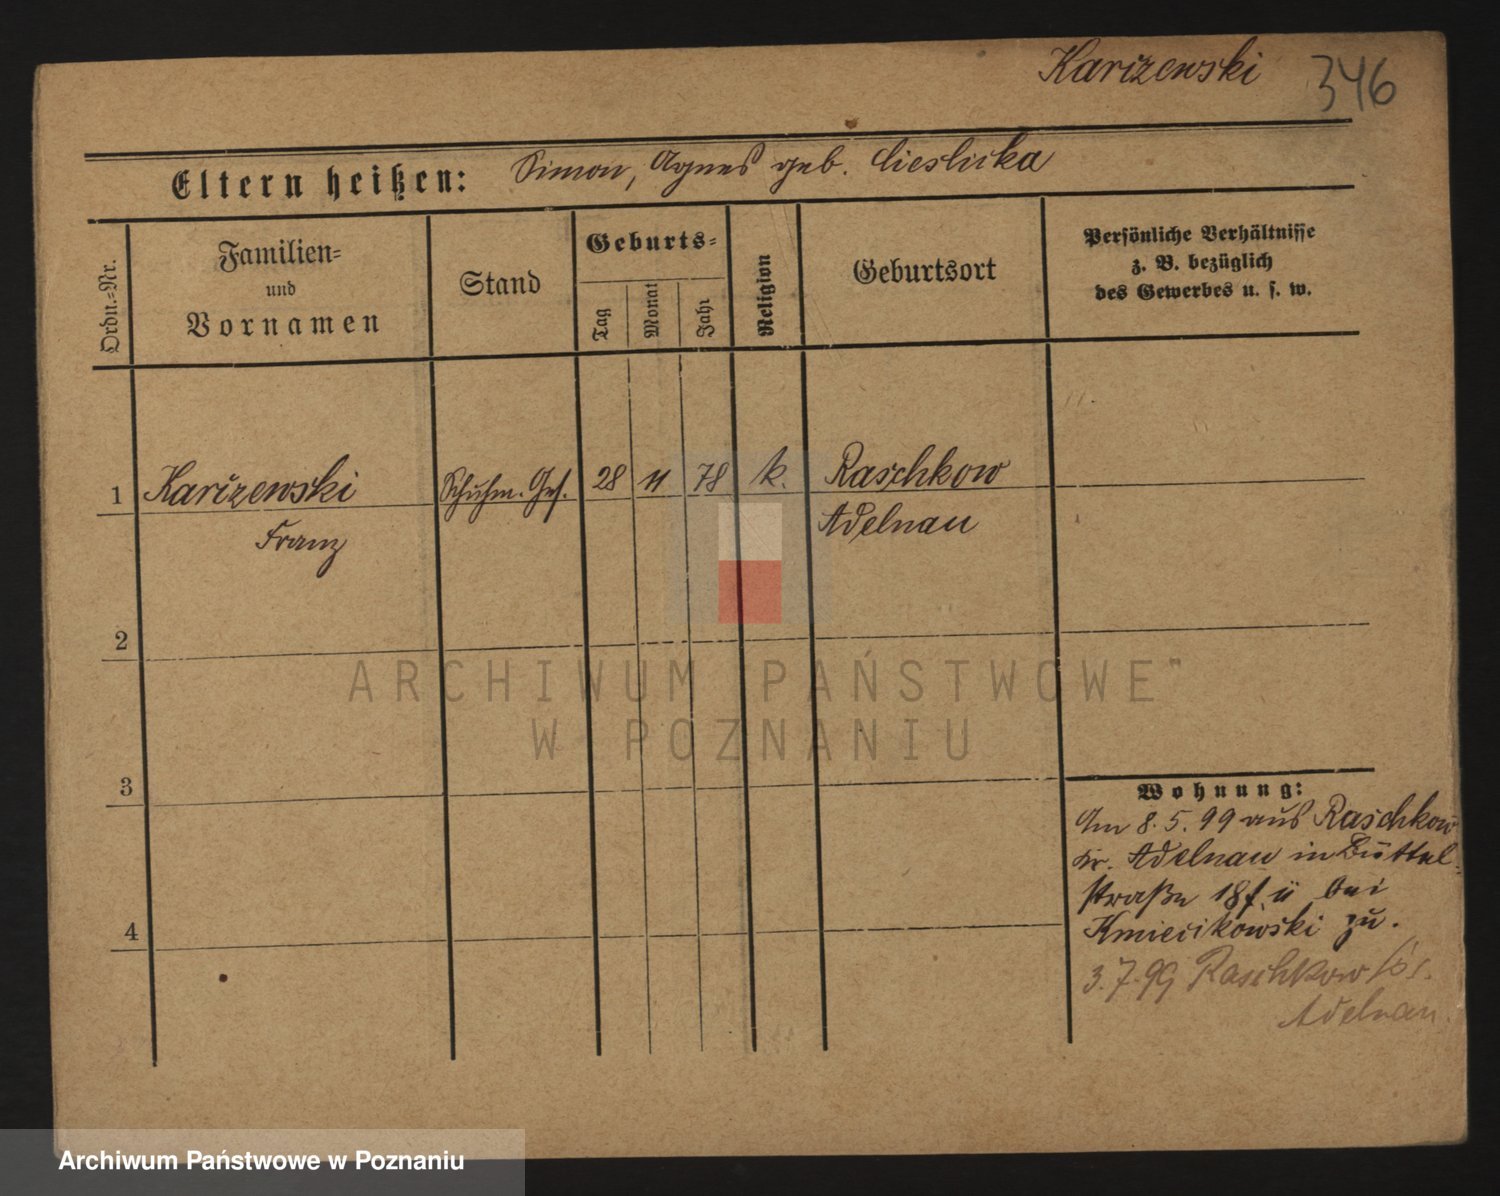 Karizewski 346
Eltern heißen: Simon, Agnes geb. Cieslicka
Ordn.=Nr.
Familien=
und
Vornamen
Stand
Geburts=
Tag
Monat
Jahr
Religion
Geburtsort
Persönliche Verhältnisse
z. B. bezüglich
des Gewerbes u. s. w.
1 Karizewski Schuhm. Ges. 28 11 78 k. Raschkow
Franz Adelnau
2
ARCHIWUM PAŃSTWOWE
W POZNANIU
3
Wohnung:
Am 8. 5. 99 aus Raschkow
Kr. Adelnau in Büttel-
straße 18 bei
4
Kmiecikowski zu.
3.7.99 Raschkow
Adelnau.
Archiwum Państwowe w Poznaniu